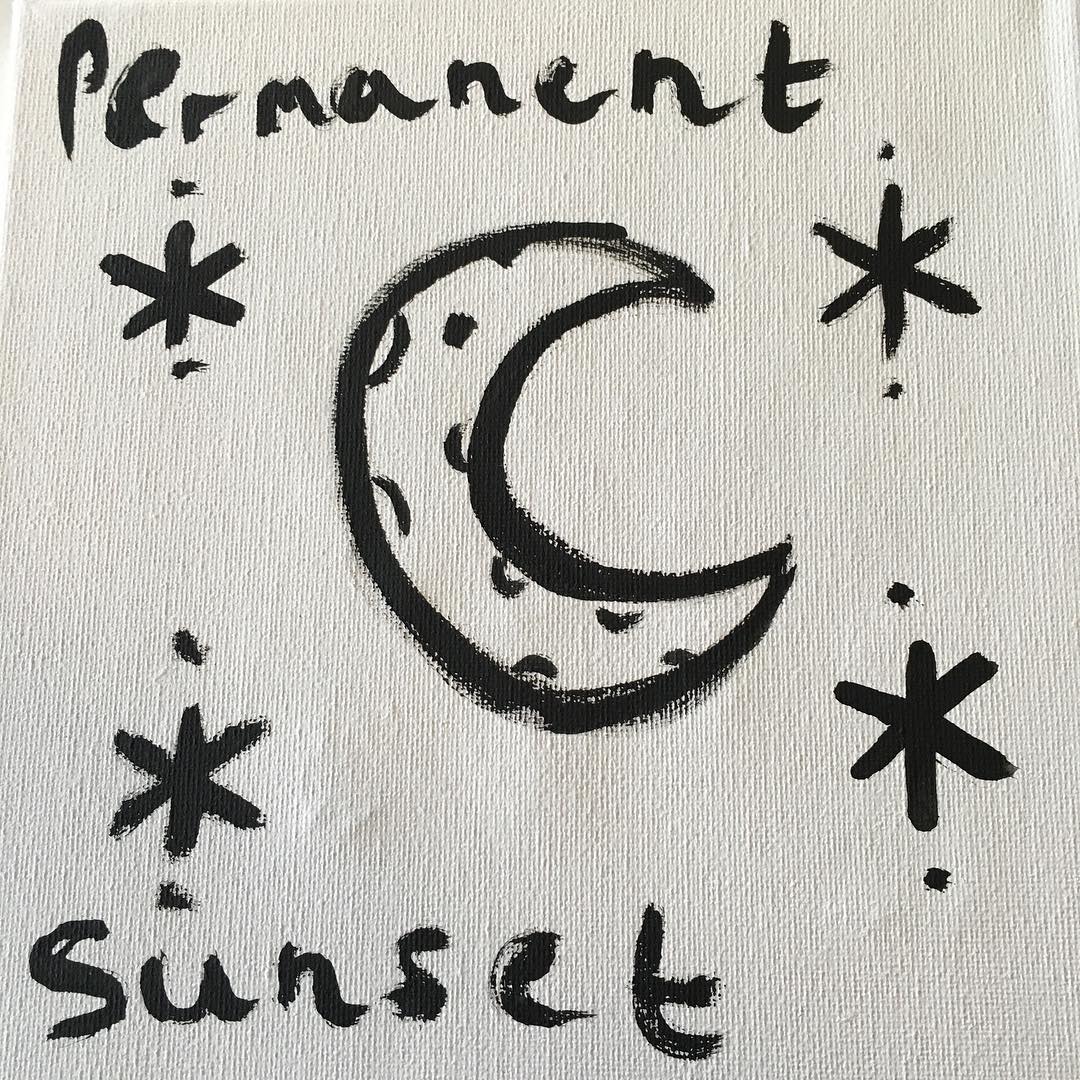 Permanent
Sunset